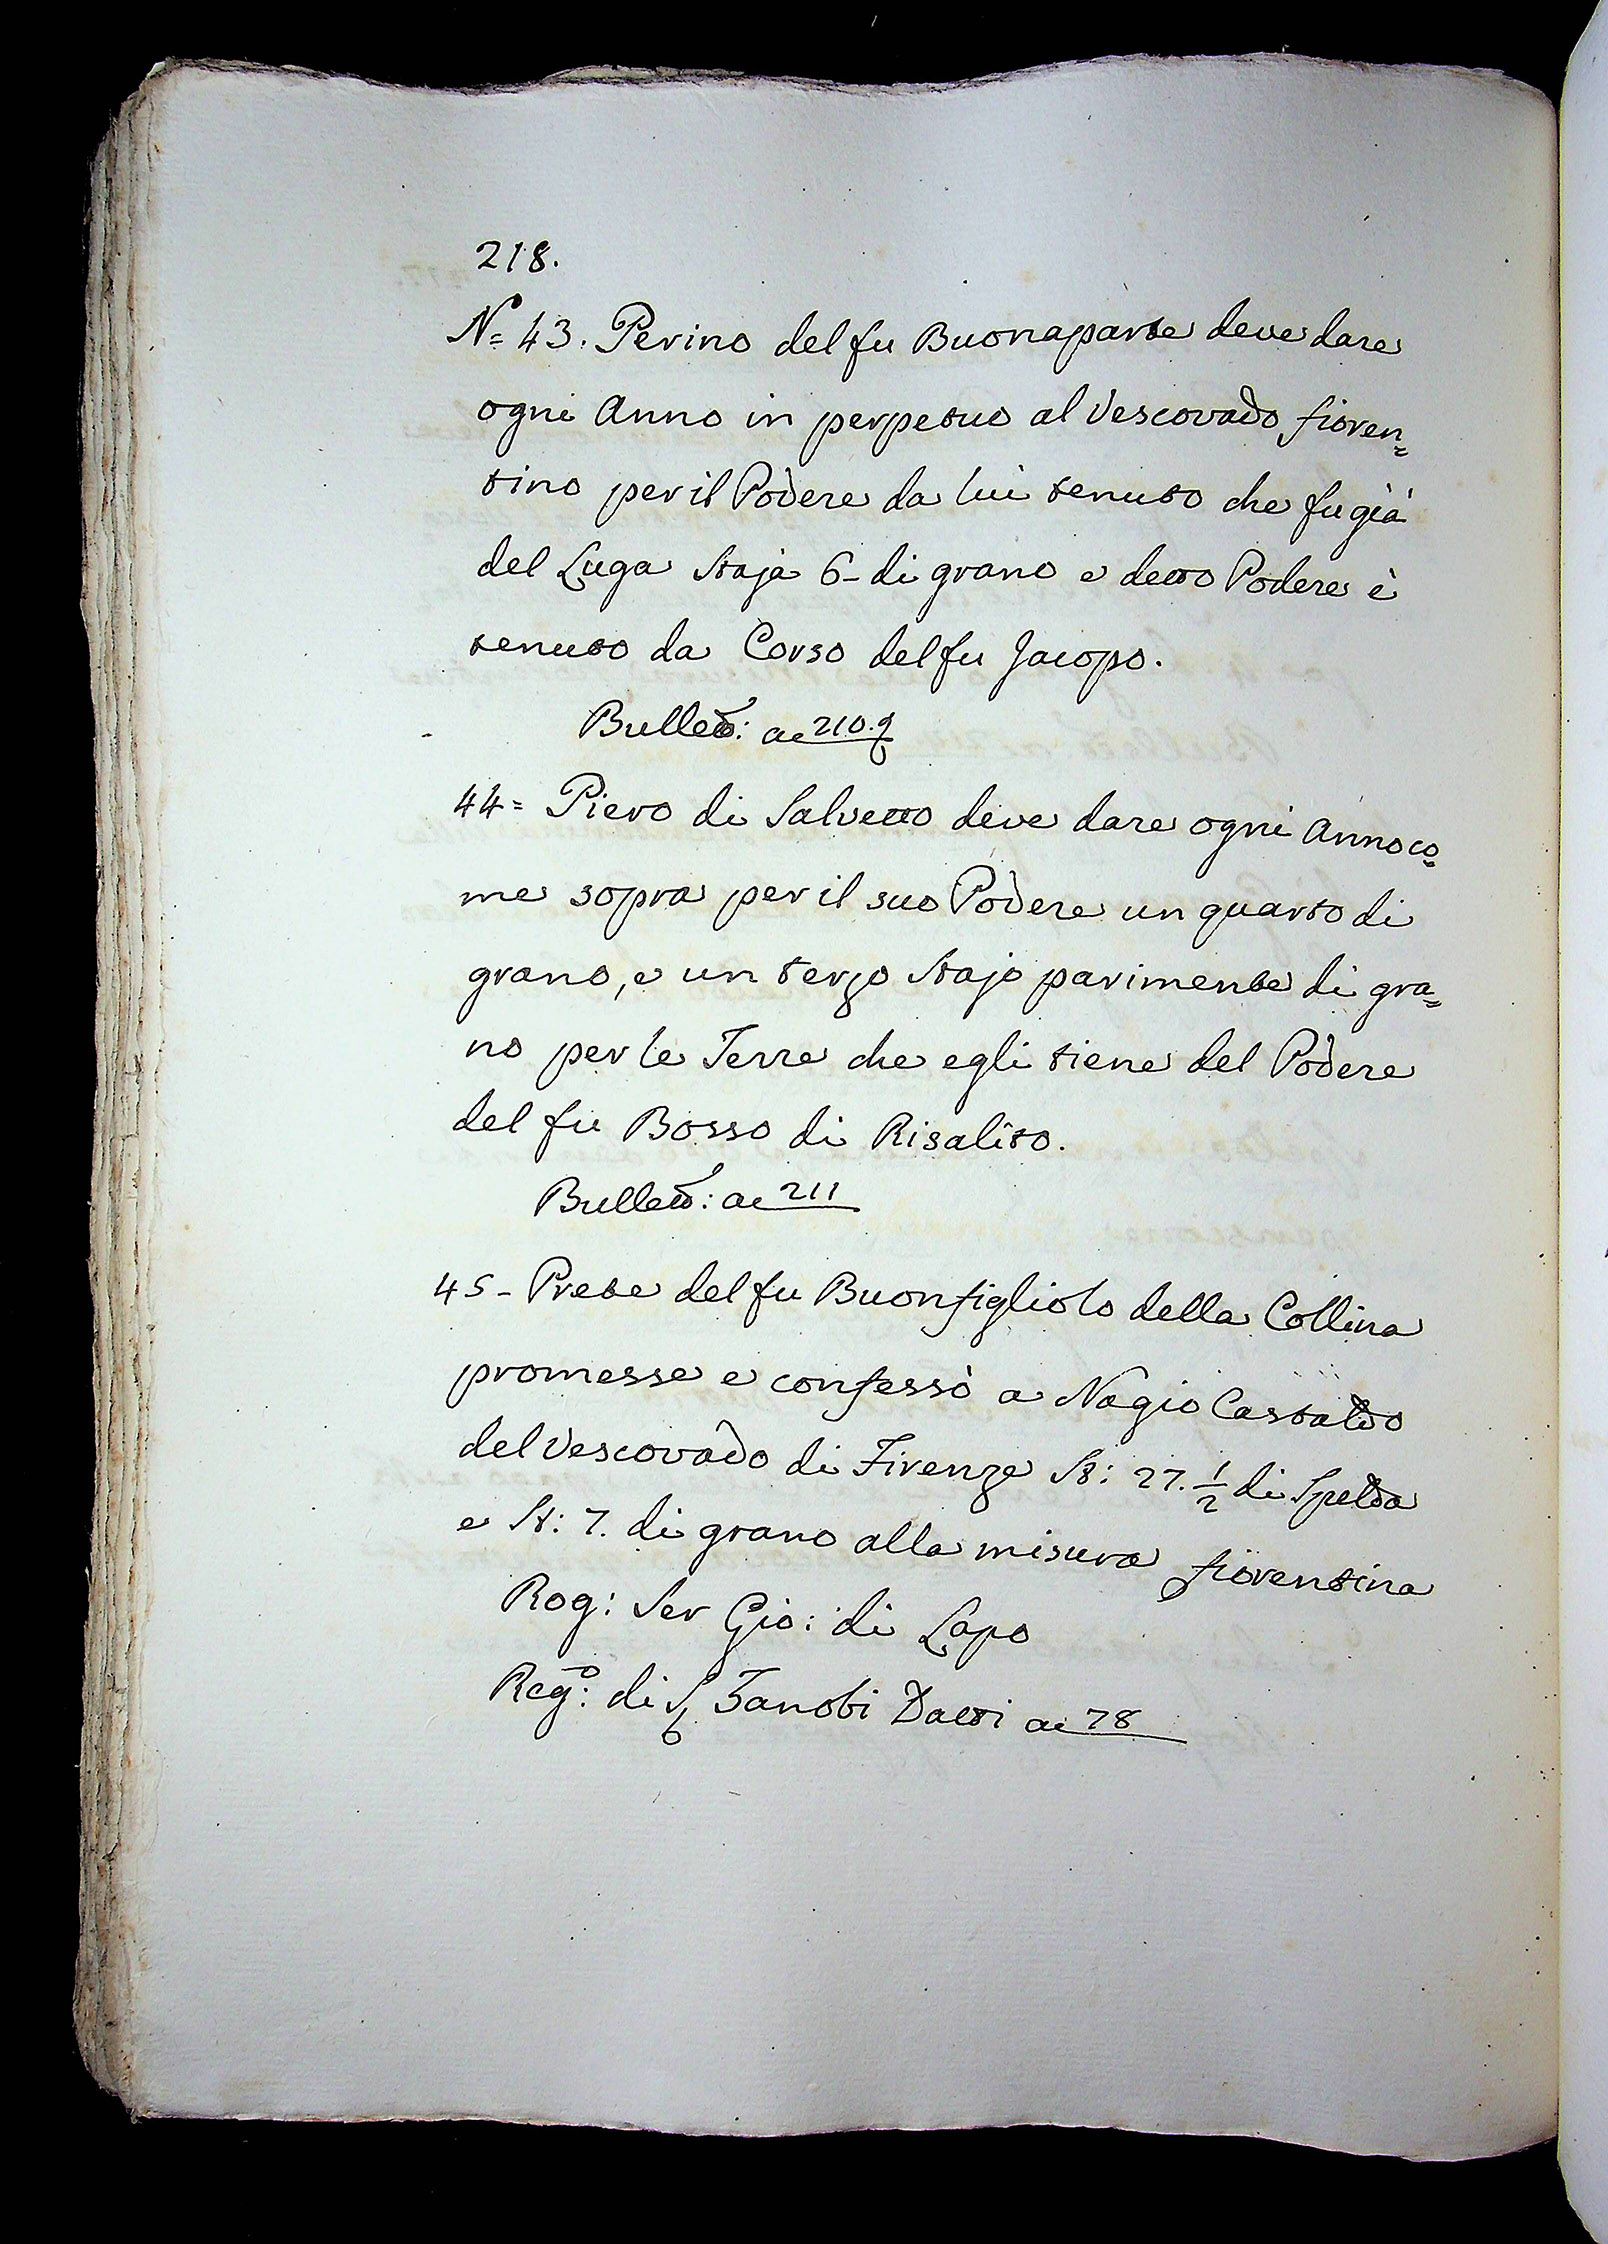 218.
N= 43. Perino del fu Buonaparte deve dare
ogni Anno in perpetuo al Vescovado fioren=
tino per il Podere da lui tenuto che fu già
del Luga Staja 6- di grano e detto Podere è
tenuto da Corso del fu Jacopo.
Bullett: ac 210.
44= Piero di Salvetto deve dare ogni Anno co=
me sopra per il suo Podere un quarto di
grano, e un terzo Stajo parimente di gra=
no per le Terre che egli tiene del Podere
del fu Bosso di Risalito.
Bullett: ac 211
45- Prete del fu Buonfigliolo della Collina
promesse e confessò a Nagio Castaldo
del Vescovado di Firenze St: 27. 1/2 di Spelda
e St: 7. di grano alla misura fiorentina
Rog: Ser Gio: di Lapo
Reg:o di S. Zanobi Datti ac 78